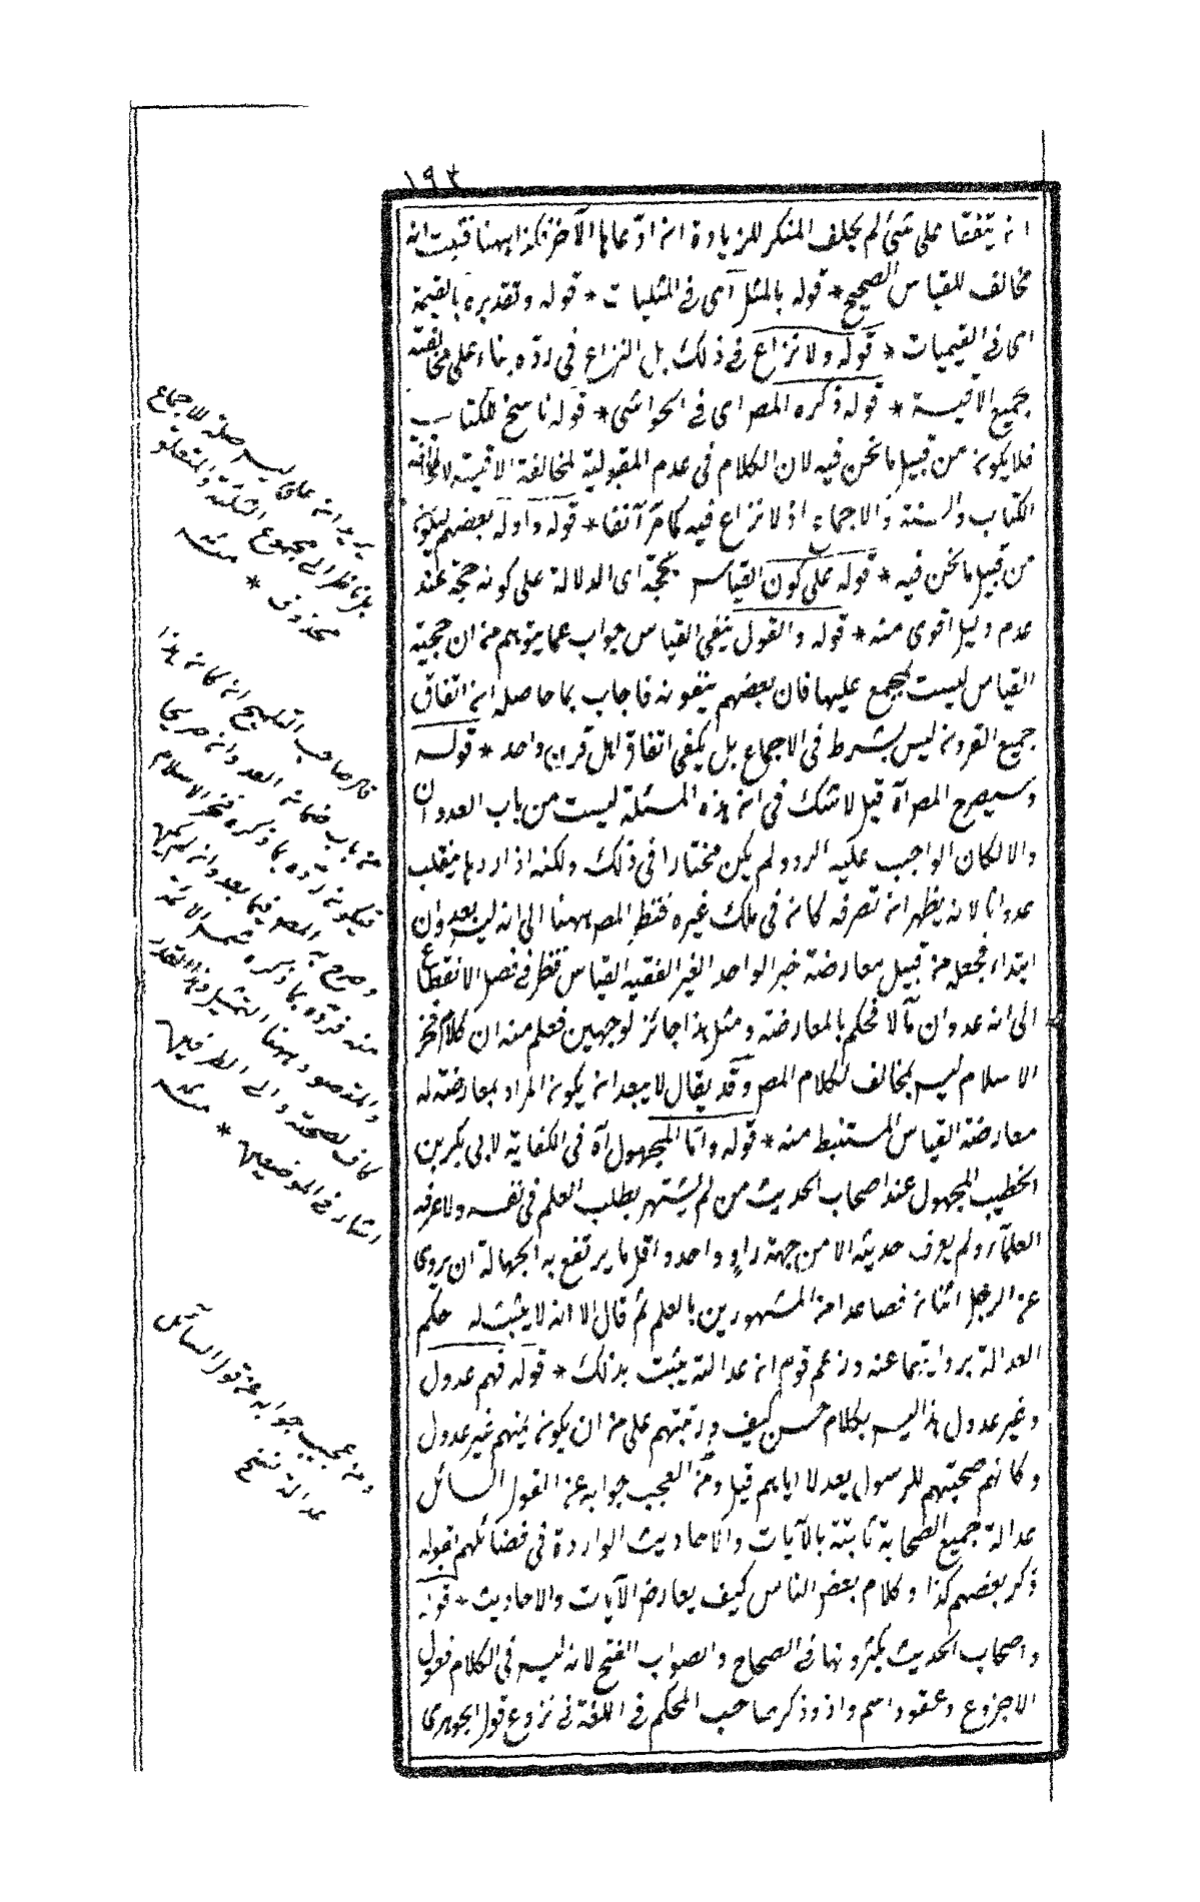 ١٩٣
انه يتفقا على شئ لم يحلف المنكر للزيادة انه ادعاها الآخر فكذا ههنا فثبت انه
مخالف للقياس الصحيح * قوله بالمثل اى فى المثليات * قوله وتقديره بالقيمة
اى فى القيميات * قوله ولا نزاع فى ذلك بل النزاع فى رده بناء على مخالفته
جميع الاقيسة * قوله ذكره المص اى فى الحواشى * قوله ناسخ للكتاب
فلا يكون من قبيل ما نحن فيه لان الكلام فى عدم المقبولية لمخالفة الاقيسة لا لمخالفة
الكتاب والسنة والاجماع اذ لا نزاع فيه كما مر آنفا * قوله واوله بعضهم ليكون
من قبيل ما نحن فيه * قوله على كون القياس بحجة اى الدلالة على كونه حجة عند
عدم دليل اقوى منه * قوله والقول بنفى القياس جواب عما يتوهم من ان حجية
القياس ليست بمجمع عليها فان بعضهم ينفونه فاجاب بما حاصله ان اتفاق
جميع القرون ليس بشرط فى الاجماع بل يكفى اتفاق اهل قرن واحد * قوله
وسيصرح المص آه قيل لا شك فى ان هذه المسئلة ليست من باب العدوان
والا لكان الواجب عليه الرد ولم يكن مختارا فى ذلك ولكنه اذا ردها ينقلب
عدوانا لانه يظهر ان تصرفه كان فى ملك غيره فنظر المص ههنا الى انه ليس بعدوان
ابتداء فجعل من قبيل معارضة خبر الواحد الغير الفقيه القياس فنظر فى فصل الانقطاع
الى انه عدوان مآلا فحكم بالمعارضة ومثل هذا جائز لوجهين فعلم منه ان كلام فخر
الاسلام ليس بمخالف لكلام المص وقد يقال لا يبعد ان يكون المراد بمعارضته له
معارضة القياس المستنبط منه * قوله واما المجهول آه فى الكفاية لابى بكر بن
الخطيب المجهول عند اصحاب الحديث من لم يشتهر بطلب العلم فى نفسه ولا عرفه
العلماء ولم يعرف حديثه الا من جهة راو واحد واقل ما يرتفع به الجهالة ان يروى
عن الرجل اثنان فصاعدا من المشهورين بالعلم ثم قال الا انه لا يثبت له حكم
العدالة بروايتهما عنه وزعم قوم ان عدالته يثبت بذلك * قوله فهم عدول
وغير عدول هذا ليس بكلام حسن كيف ورتبتهم على من ان يكون بينهم غير عدول
وكانهم صحبتهم للرسول يعدلا اياهم قيل ومن العجب جوابه عن القول السائل
عدالة جميع الصحابة ثابتة بالآيات والاحاديث الواردة فى فضائلهم بقوله
ذكر بعضهم كذا وكلام بعض الناس كيف يعارض الآيات والاحاديث * قوله
واصحاب الحديث يكثرونها فى الصحاح والصواب الفتح لانه ليس فى الكلام فعول
الا جزوع وعقود اسم واد وذكر صاحب المحكم فى اللغة فى نزوع قول الجوهرى
يريد ان على ليس صلة للاجماع
بل ناظر الى مجموع الثلثة والمتعلق
محذوف * منه
قال صاحب التلويح ان كان هذا
من باب ضمان العدوان صريحا
فيكون رده بما ذكره فخر الاسلام
وصرح به المص فيما بعد وان لم يكن
منه فرده بما ذكره شمس الائمة
والمقصود ههنا التمثيل وهذا القدر
كاف لصحته والى الطرفين
اشار فى الموضعين * منه
ومن عجيب جوابه عن قول السائل
عدالة نسخ